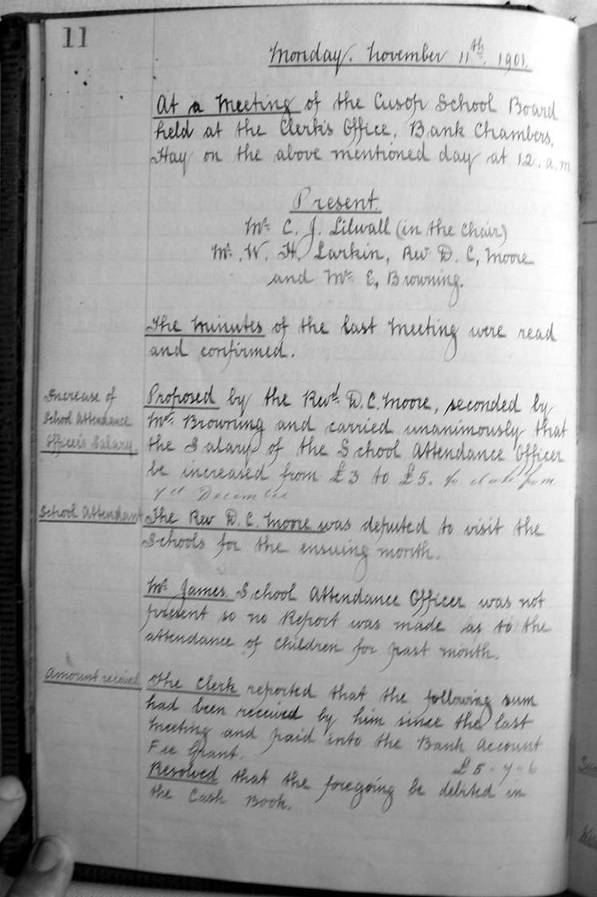 11
Monday. November 11th. 1901.
At a Meeting of the Cusop School Board
held at the Clerk's Office, Bank Chambers,
Hay on the above mentioned day at 12. a.m
Present.
Mr. C. J. Lilwall (in the Chair)
Mr. W. H. Larkin, Rev. D. C. Moore
and Mr. E. Browning.
The Minutes of the last Meeting were read
and confirmed.
Increase of
School Attendance
Officer's Salary.
Proposed by the Revd. D. C. Moore, seconded by
Mr. Browning and carried unanimously that
the Salary of the School Attendance Officer
be increased from £3 to £5. to date from
1st December
School Attendant
The Rev D. C. Moore was deputed to visit the
Schools for the ensuing month.
Mr. James School Attendance Officer was not
present so no Report was made as to the
attendance of Children for past month.
Amount received
The Clerk reported that the following sum
had been received by him since the last
Meeting and paid into the Bank Account
Fee Grant. £5-7-6
Resolved that the foregoing be debited in
the Cash Book.